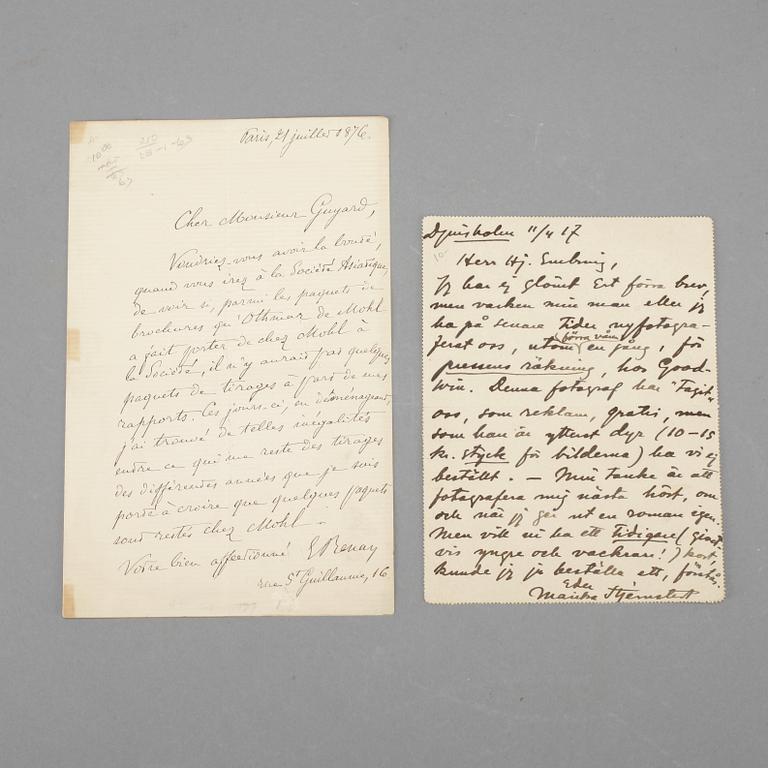 Paris, 21 juillet 1876.
Cher Monsieur Guyard,
Voudriez-vous avoir la bonté,
quand vous irez à la Société Asiatique,
de voir si, parmi les paquets de
brochures qu'Othmar de Mohl
a fait porter de chez Mohl à
la Société, il n'y aurait pas quelques
paquets de tirages à part de mes
rapports. Ces jours-ci, en déménageant,
j'ai trouvé de telles inégalités
entre ce qui me reste des tirages
des différentes années que je suis
porté à croire que quelques paquets
sont restés chez Mohl.
Votre bien affectionné E Renan
rue St Guillaume, 16
Djursholm 11/4 17
Herr Hj.
Jag har ej glömt Ert förra brev,
men varken min man eller jag
ha på senare tider nyfotogra-
ferat oss, utom (förra våren) en gång, för
pressens räkning, hos Good-
win. Denna fotograf har "tagit"
oss, som reklam, gratis, men
som han är ytterst dyr (10-15
kr. styck för bilderna) ha vi ej
beställt. - Min tanke är att
fotografera mig nästa höst, om
och när jag ger ut en roman igen.
Men vill ni ha ett tidigare (
vis yngre och vackrare!) kort,
kunde jag ju beställa ett, förstås.
Eder
Marika Stjernstedt